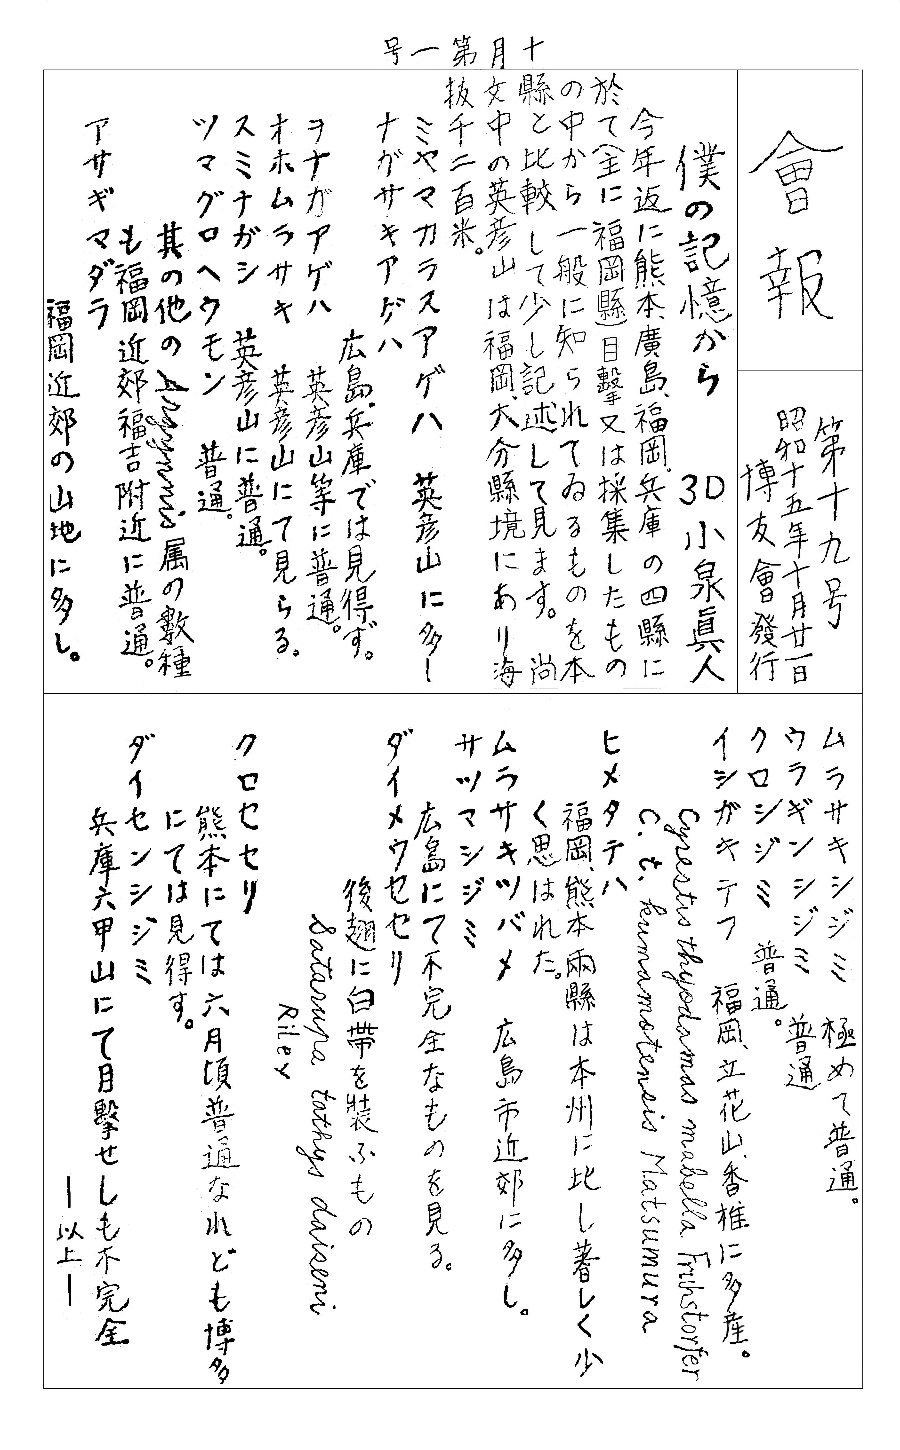 十月第一号
會報
第十九号
昭和十五年十月廿一日
博友會發行
僕の記憶から　3D 小泉眞人
今年返に熊本、廣島、福岡、兵庫の四縣に
於て(全に福岡縣)目擊又は採集したもの
の中から一般に知られてゐるものを本
縣と比較して少し記述して見ます。尚
文中の英彦山は福岡、大分縣境にあり海
抜千二百米。
ミヤマカラスアゲハ　英彦山に多し
ナガサキアゲハ
広島、兵庫では見得ず。
ヲナガアゲハ　英彦山等に普通。
オホムラサキ　英彦山にて見らる。
スミナガシ　英彦山に普通。
ツマグロヘウモン　普通。
其の他のArgynnis属の數種
も福岡近郊福吉附近に普通。
アサギマダラ
福岡近郊の山地に多し。
ムラサキシジミ　極めて普通。
ウラギンシジミ　普通
クロシジミ　普通。
イシガキテフ　福岡、立花山、香椎に多産。
Cyrestis thyodamas mabella Fruhstorfer
C. t. kumamotensis Matsumura
ヒメタテハ
福岡、熊本兩縣は本州に比し著しく少
く思はれた。
ムラサキツバメ　広島市近郊に多し。
サツマシジミ
広島にて不完全なものを見る。
ダイメウセセリ
後翅に白帶を裝ふもの
Satarupa tethys daiseni
Riley
クロセセリ
熊本にては六月頃普通なれども博多
にては見得す。
ダイセンシジミ
兵庫六甲山にて目擊せしも不完全
ー以上ー